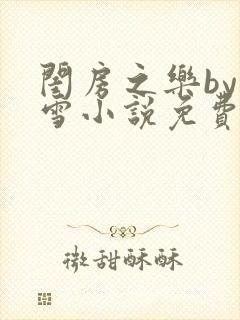 閨房之樂by
雪小說免費
微甜酥酥